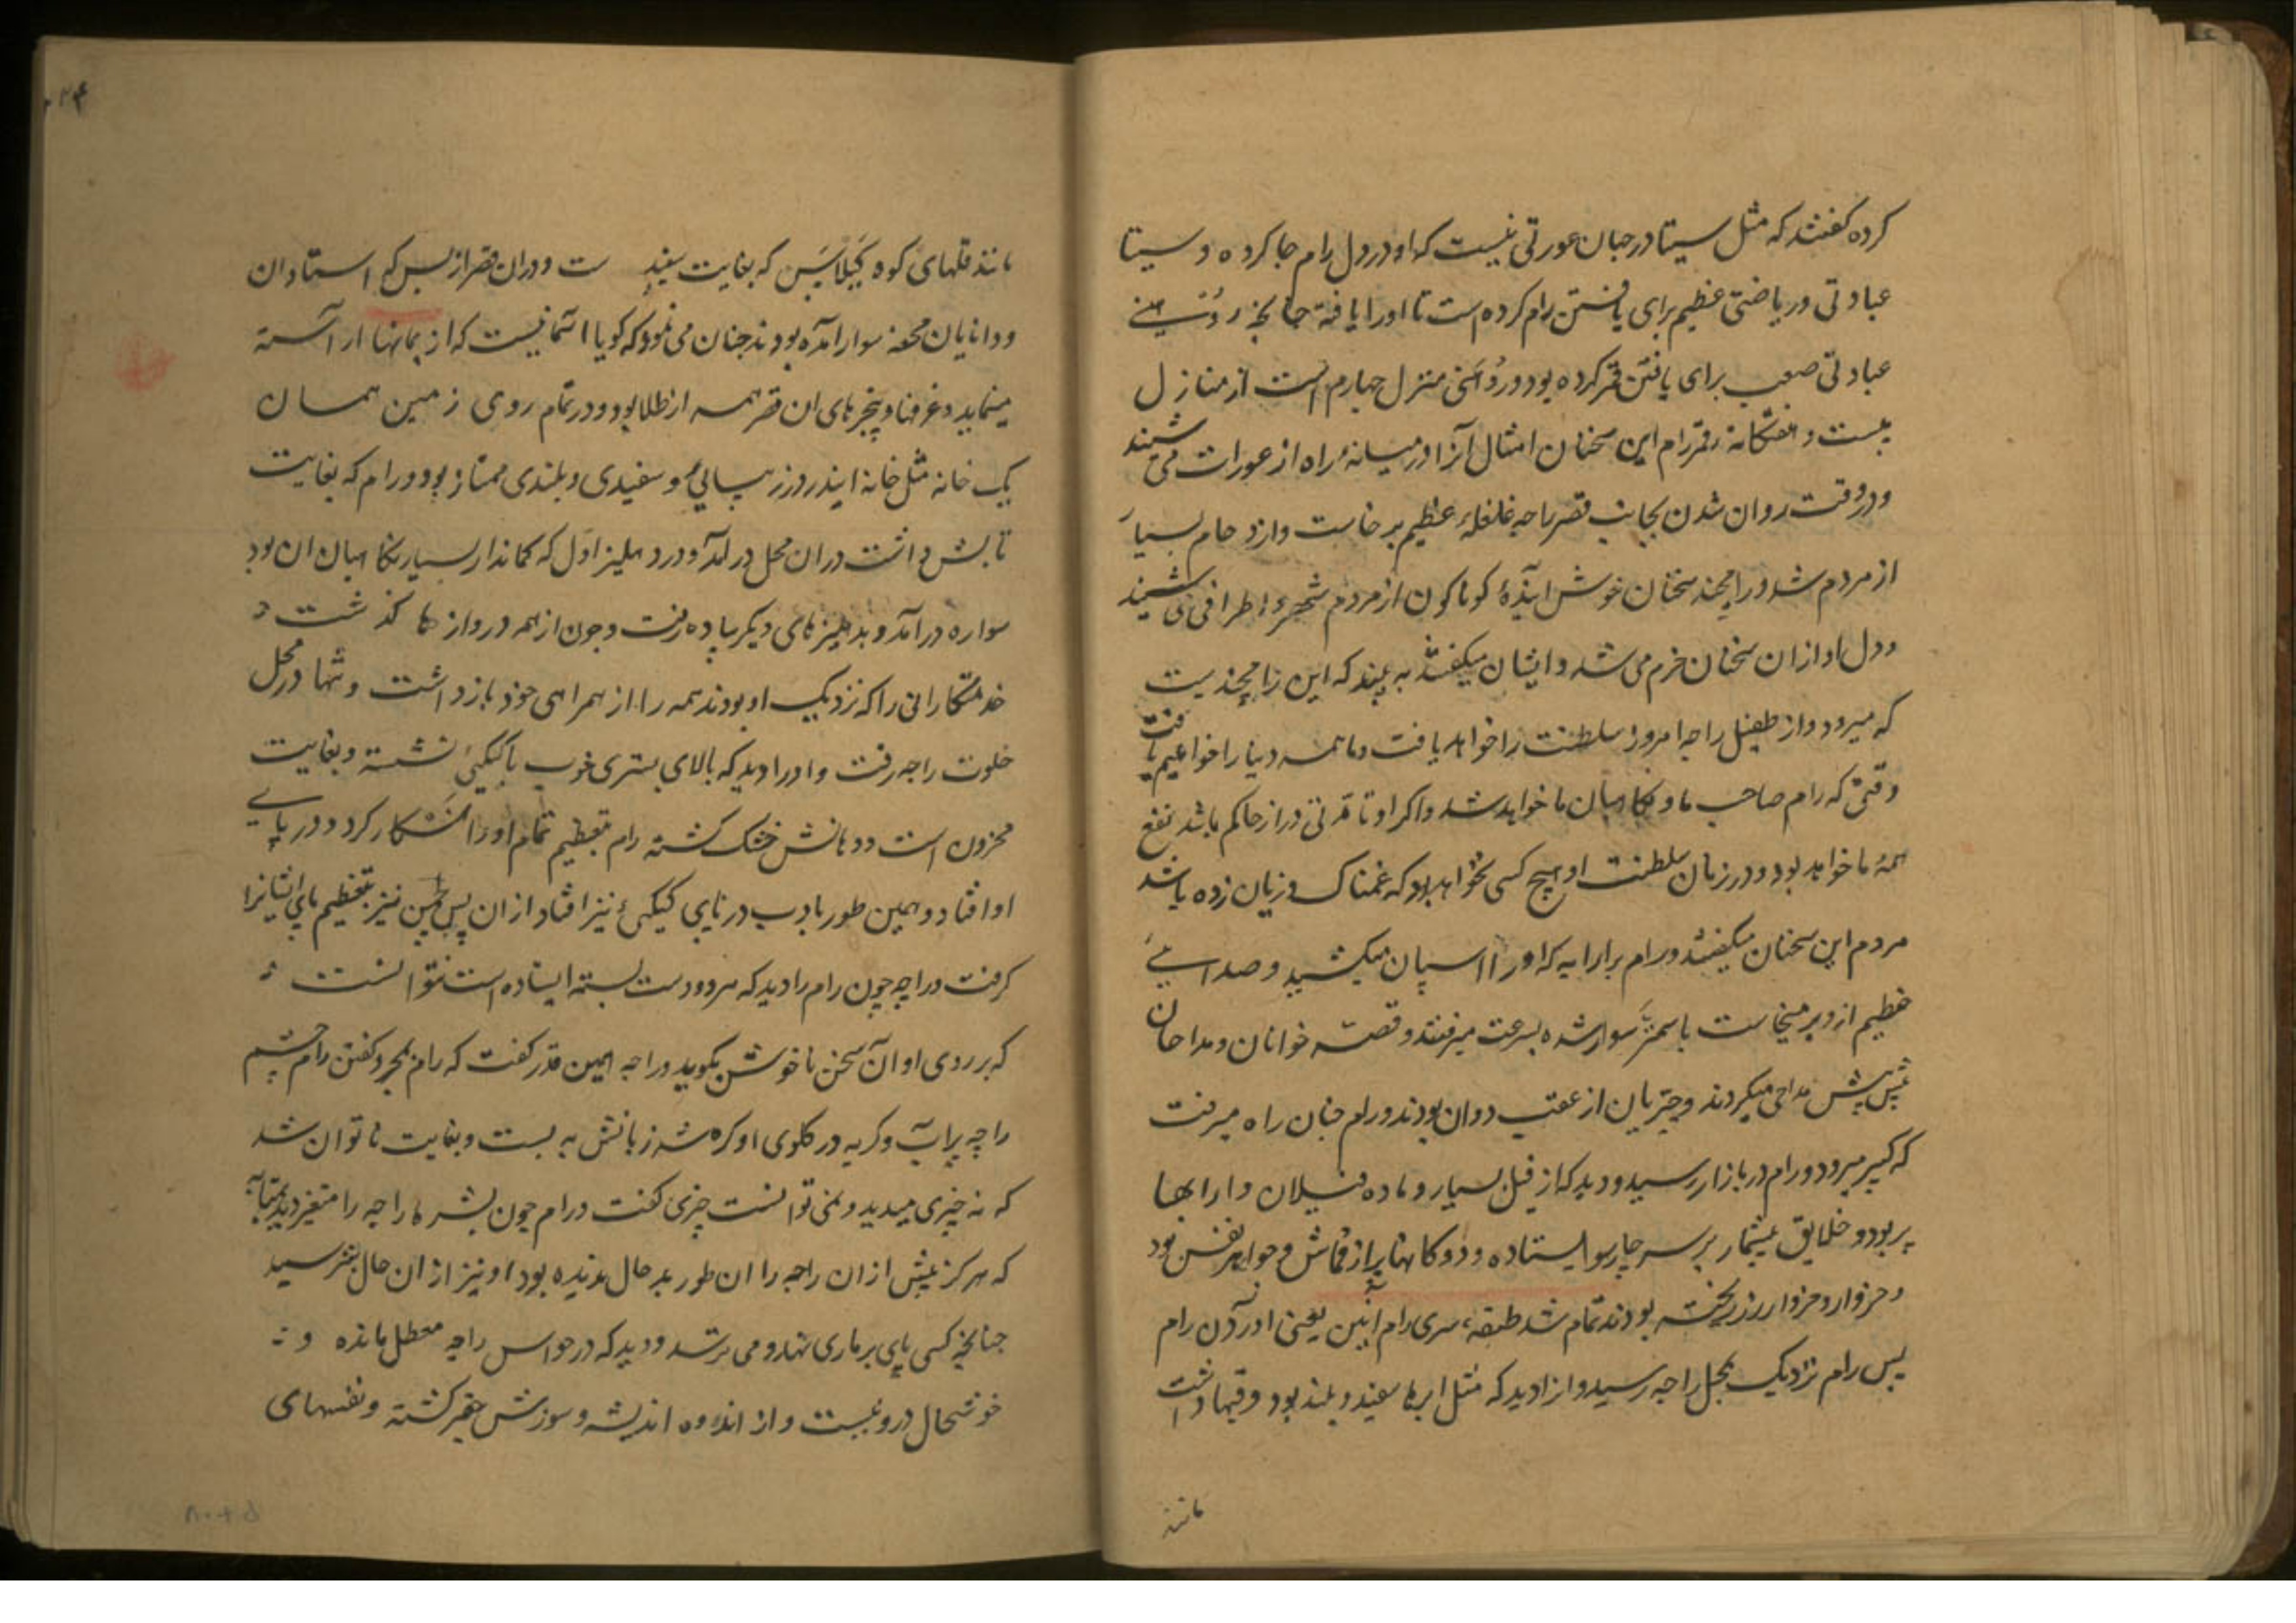 کرده گفتند که مثل سیتا در جهان عورتی نیست که او در دل رام جا کرده و سیتا
عبادتی و ریاضتی عظیم برای یافتن رام کرده است تا او را یافته چنانچه رُوْهنی
عبادتی صعب برای یافتن قمر کرده بود و رُوْهَنی منزل چهارم است از منازل
بیست و هفتگانه قمر رام این سخنان امثال آنرا در میانهٔ راه از عورات می شنید
و در وقت روان شدن بجانب قصر راجه غلغلهٔ عظیم برخاست و ازدحام بسیار
از مردم شد و رامچند سخنان خوش آیندهٔ کوناکون از مردم شهر و اطرافی می شنید
و دل او ازان سخنان خرم می شد و ایشان میکفتند به بینید که این رامچندیست
که میرود و از طفیل راجه امروز سلطنت را خواهد یافت و ما همه دنیا را خواهیم یافت
وقتی که رام صاحب ما و نکاهبان ما خواهد شد و اکر او تا مدتی دراز حاکم باشد نفع
همهٔ ما خواهد بود و در زمان سلطنت او هیچ کسی نخواهد بود که غمناک و زیان زده باشد
مردم این سخنان میکفتند و رام بر ارابه که او را اسپان میکشید و صدایی
عظیم ازو بر میخاست با سمنتر سوار شده بسرعت میرفتند و قصه خوانان و مداحان
پیش پیش مداحی میکردند و چتریان از عقب دوان بودند و رام چنان راه میرفت
که کبیر میرود و رام در بازار رسید و دید که از فیل بسیار و ماده فیلان و ارابها
پر بود و خلایق بیشمار بر سر چارسو ایستاده و دوکانها پر از قماش و جواهر نفیس بود
و خروار و خروار زر ریخته بودند تمام شد طبقه سری رام آنین یعنی آوردن رام
پس رام نزدیک بمحل راجه رسید و آنرا دید که مثل ابرها سفید و بلند بود و قبها داشت
مانند
مانند قلهای کوه کَیلاسَن که بغایت سفید ست و دران قصر از بس که استادان
و دانایان محفه سوار آمده بودند چنان می نمود که کویا آسمانیست که از بمانها آراسته
مینماید و غرفها و پنجرهای ان قصر همه از طلا بود و در تمام روی زمین همسان
یک خانه مثل خانهٔ ایندر و زیبایی و سفیدی و بلندی ممتاز بود و رام که بغایت
تابش داشت دران محل درآمد و در دهلیز اول که کماندار بسیار نکاهبان ان بود
سواره درآمد و بدهلیزهای دیکر پیاده رفت و چون از همه دروازها کذشت و
خدمتکارانی را که نزدیک او بودند همه را از همراهی خود بازداشت و تنها در محل
خلوت راجه رفت و او را دید که بالای بستری خوب با کیکئی نشسته و بغایت
محزون است و دهانش خشک کشته رام بتعظیم تمام او را نَمَسْکار کرد و در پایی
او افتاد و همین طور بادب در پای کیکئی نیز افتاد ازان پس لچمن نیز بتعظیم پای ایشانرا
کرفت و راجه چون رام را دید که هر دو دست بسته ایستاده است نتوانست
که بر روی او آن سخن ناخوش بکوید و راجه همین قدر کفت که رام بمجرد کفتن رام چشم
راجه پر آب و کریه در کلوی او کره شد زبانش به بست و بغایت ناتوان شد
که نه چیزی میدید و نمی توانست چیزی کفت و رام چون بشره راجه را متغیر دید بمثابه
که هرکز پیش ازان راجه را ان طور بدحال ندیده بود او نیز ازان حال بترسید
چنانچه کسی پای بر ماری نهد و می ترسد و دید که در حواس راجه معطل مانده و
خوشحال درو نیست و از اندوه اندیشه و سوزش حقیر کشته و نفسهای